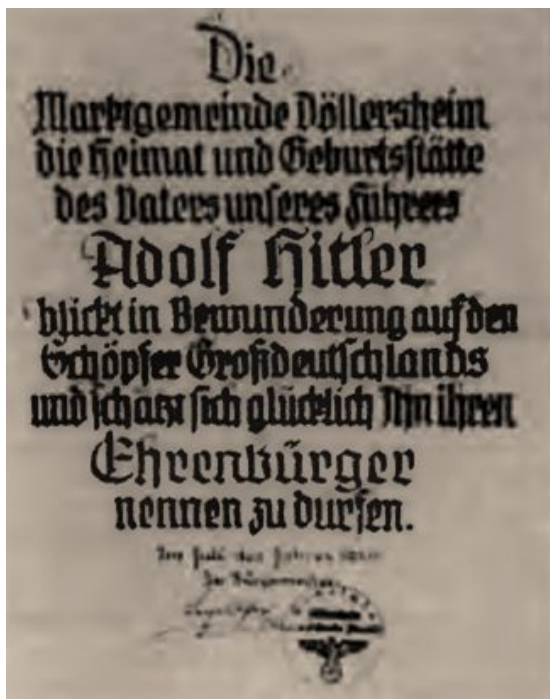 Die
Marktgemeinde Döllersheim
die Heimat und Geburtsstätte
des Vaters unseres Führers
Adolf Hitler
blickt in Bewunderung auf den
Schöpfer Großdeutschlands
und schätzt sich glücklich Ihn ihren
Ehrenbürger
nennen zu dürfen.
Im Juli des Jahres
Der Bürgermeister